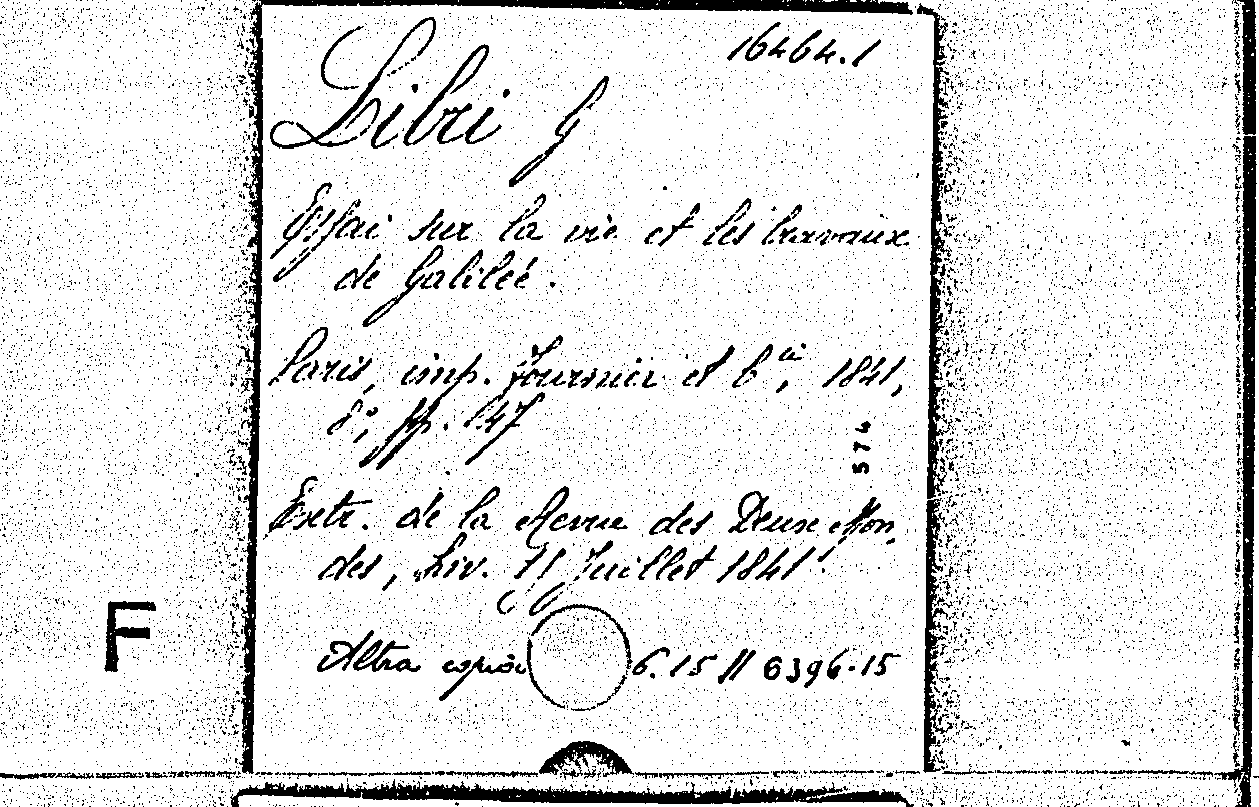 16464.1
Libri G
Essai sur la vie et les travaux
de Galileé.
Paris, imp. Fournier et C.ie, 1841,
8°, pp. 47
574
Extr. de la Revue des Deux Mon,
des, Liv. Juillet 1841.
F
Altra copia 6.15 // 6396.15